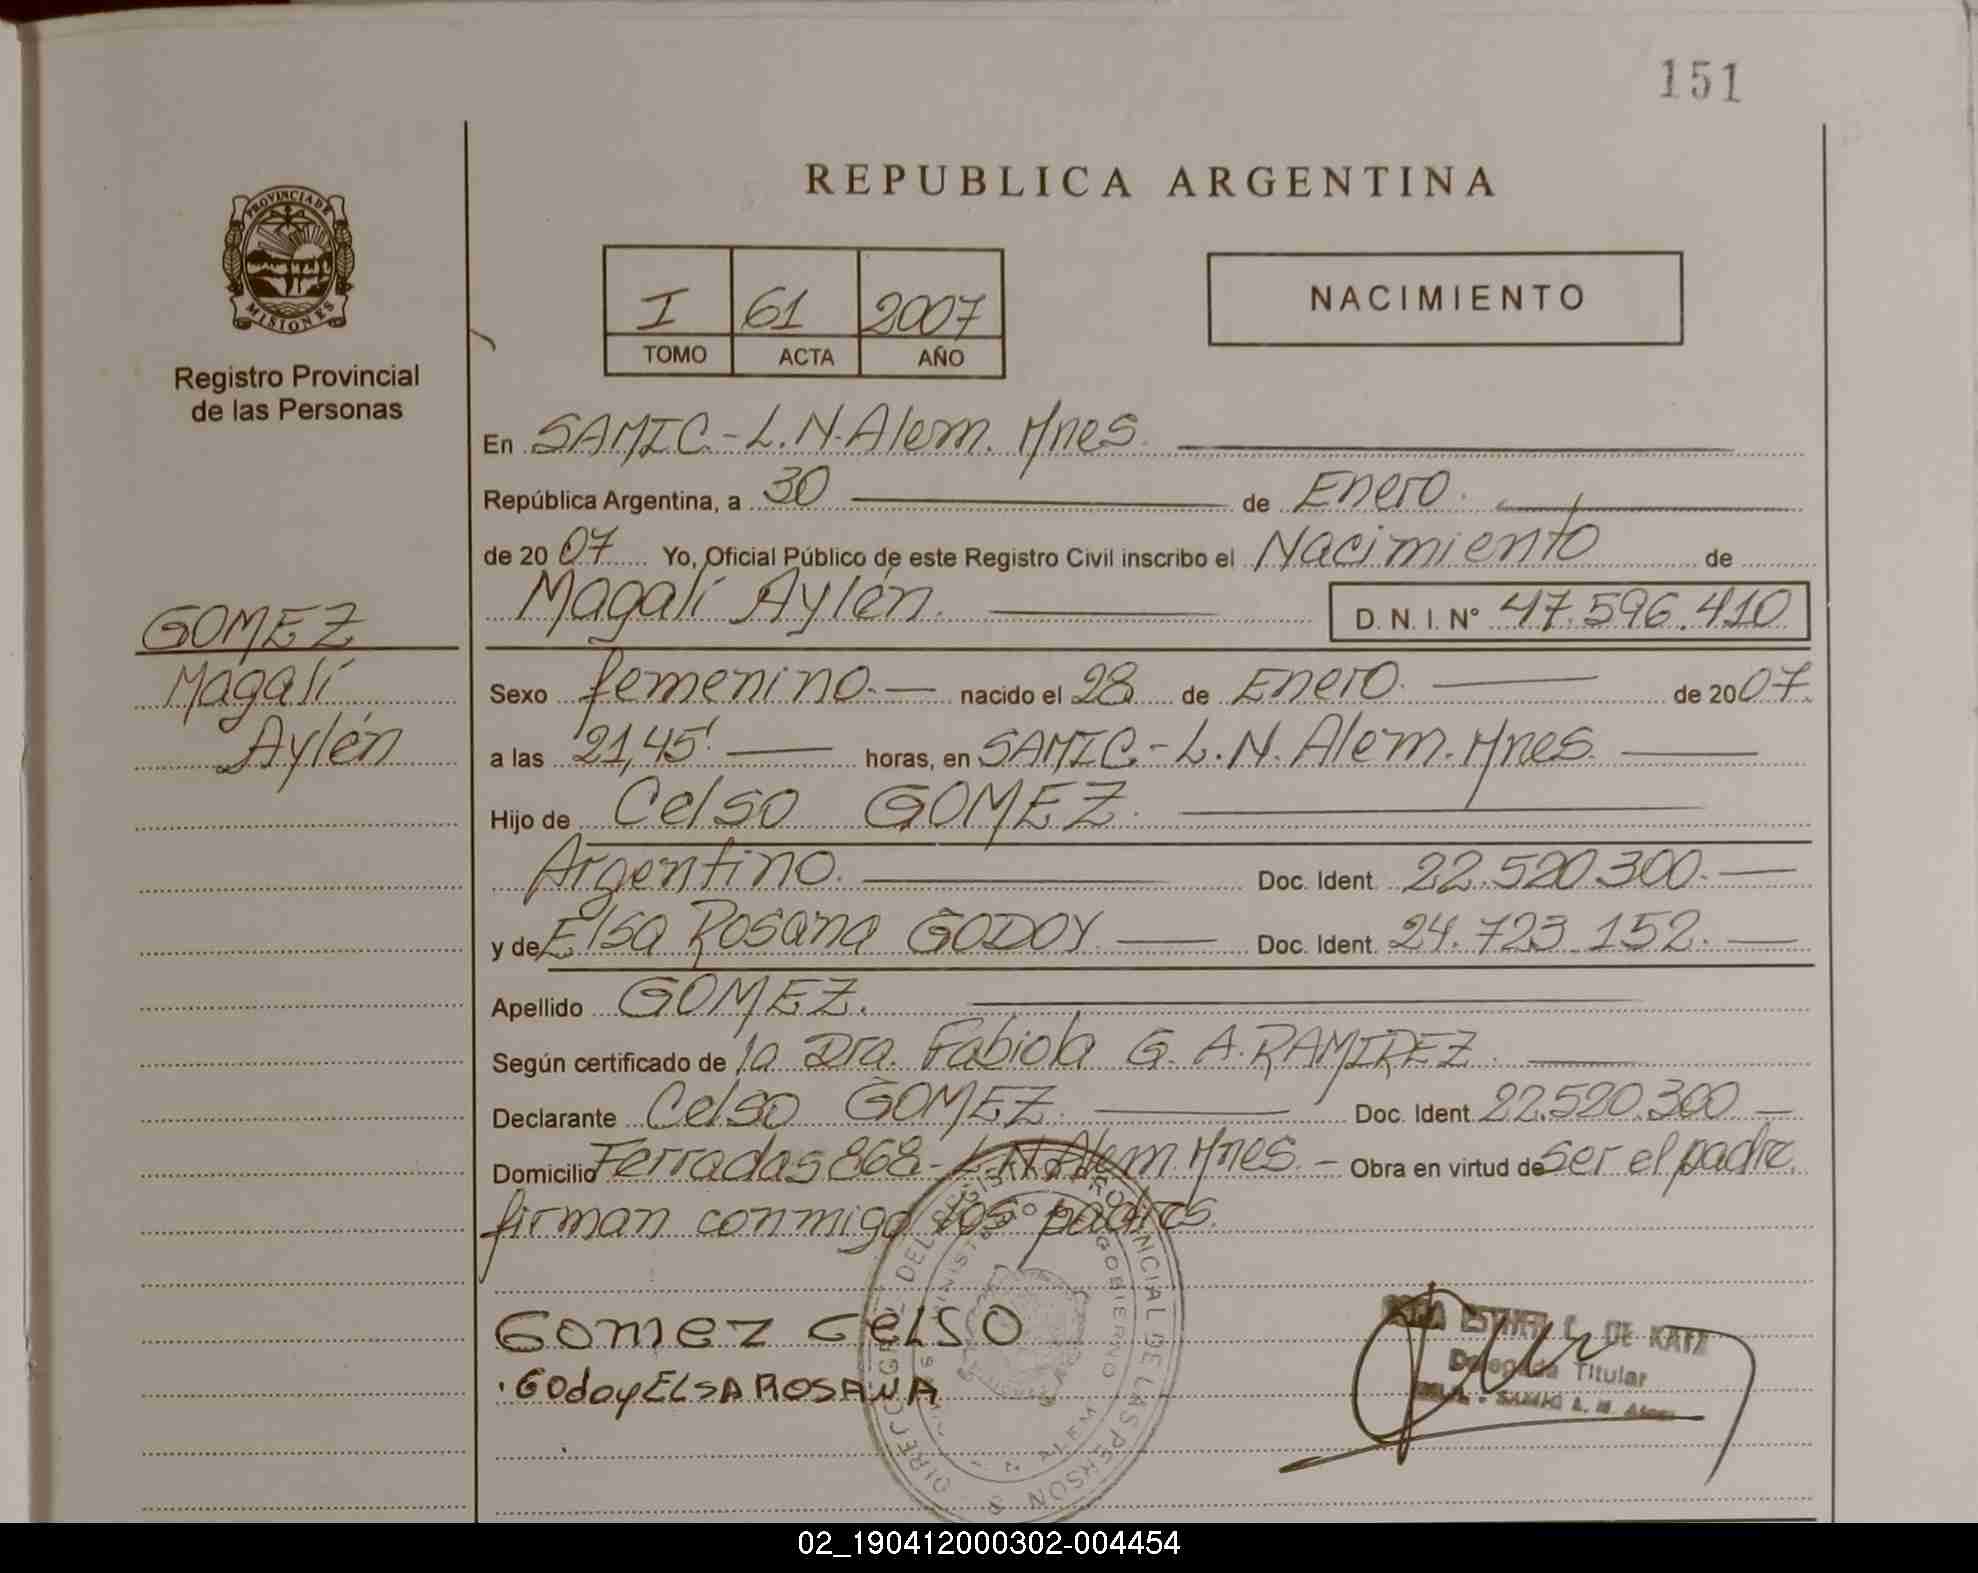 151
PROVINCIA DE
MISIONES
Registro Provincial
de las Personas
REPUBLICA ARGENTINA
I 61 2007
TOMO ACTA AÑO
NACIMIENTO
En SAMIC - L. N. Alem. Mnes.
República Argentina, a 30 de Enero.
de 2007 Yo, Oficial Público de este Registro Civil inscribo el Nacimiento de
Magalí Aylén. D. N. I. N° 47.596.410
GOMEZ
Magalí
Aylén
Sexo femenino.- nacido el 28 de Enero. de 2007.
a las 21,45' horas, en SAMIC - L. N. Alem. Mnes.
Hijo de Celso GOMEZ.
Argentino. Doc. Ident. 22.520.300.-
y de Elsa Rosana GODOY. Doc. Ident. 24.723.152.-
Apellido GOMEZ.
Según certificado de la Dra. Fabiola G. A. RAMIREZ.
Declarante Celso GOMEZ. Doc. Ident. 22.520.300 -
Domicilio Ferradas 868 - L. N. Alem Mnes. - Obra en virtud de ser el padre.
firman conmigo los padres.
GOMEZ CELSO
Godoy ELSA ROSANA
ESTHER C. DE KATZ
Delegada Titular
SAMIC L. N. Alem
02_190412000302-004454